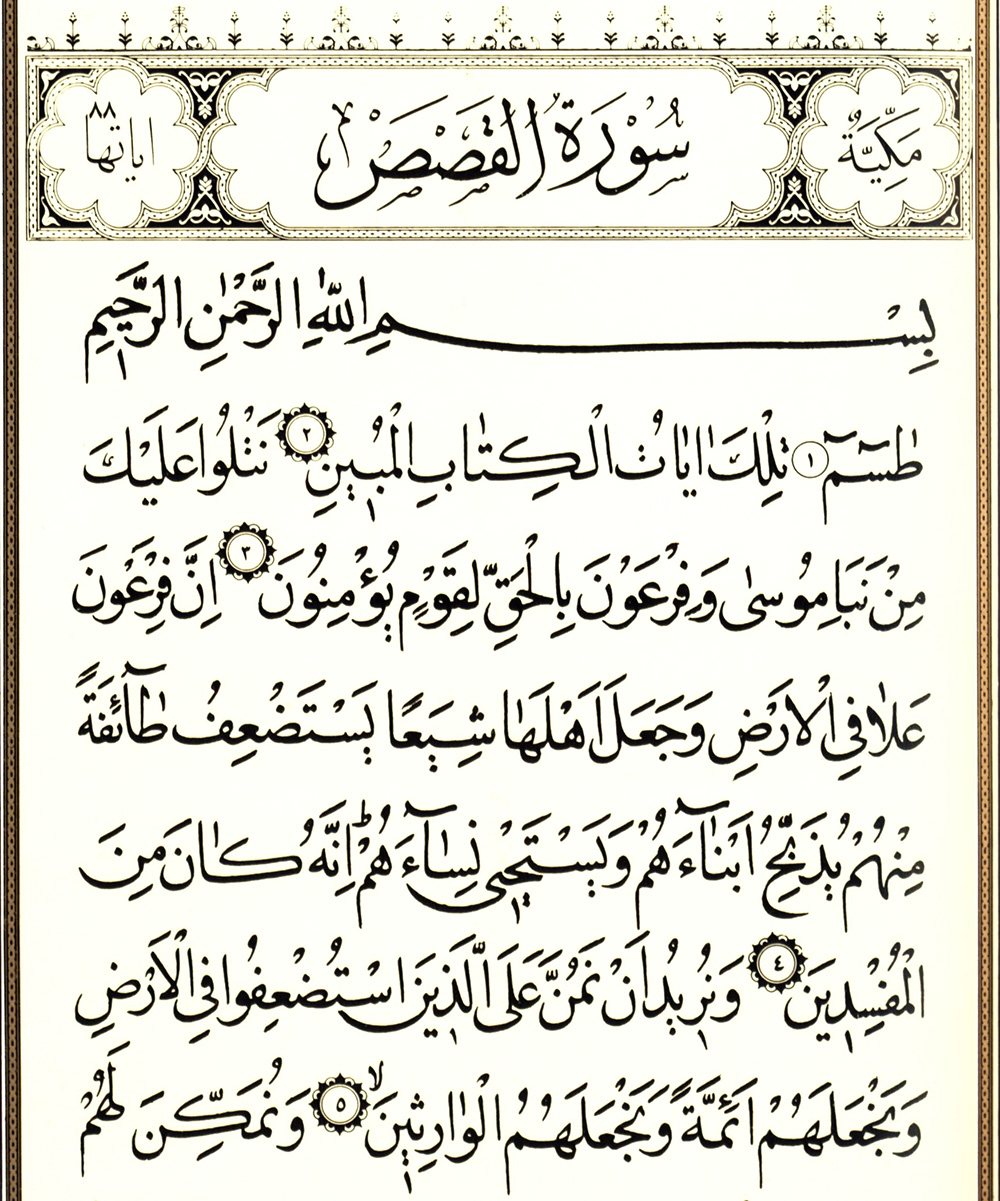 مَكِّيَّةٌ
سُوْرَةُ الْقَصَصِ
اٰيَاتُهَا ٨٨
بِسْمِ اللّٰهِ الرَّحْمٰنِ الرَّحٖيمِ
طٰسٓمٓ ١ تِلْكَ اٰيَاتُ الْكِتَابِ الْمُبٖينِ ٢ نَتْلُوا عَلَيْكَ
مِنْ نَبَاِ مُوسٰى وَفِرْعَوْنَ بِالْحَقِّ لِقَوْمٍ يُؤْمِنُونَ ٣ اِنَّ فِرْعَوْنَ
عَلَا فِي الْاَرْضِ وَجَعَلَ اَهْلَهَا شِيَعًا يَسْتَضْعِفُ طَٓائِفَةً
مِنْهُمْ يُذَبِّحُ اَبْنَٓاءَهُمْ وَيَسْتَحْيٖ نِسَٓاءَهُمْ ط اِنَّهُ كَانَ مِنَ
الْمُفْسِدٖينَ ٤ وَنُرٖيدُ اَنْ نَمُنَّ عَلَى الَّذٖينَ اسْتُضْعِفُوا فِي الْاَرْضِ
وَنَجْعَلَهُمْ اَئِمَّةً وَنَجْعَلَهُمُ الْوَارِثٖينَ لا ٥ وَنُمَكِّنَ لَهُمْ